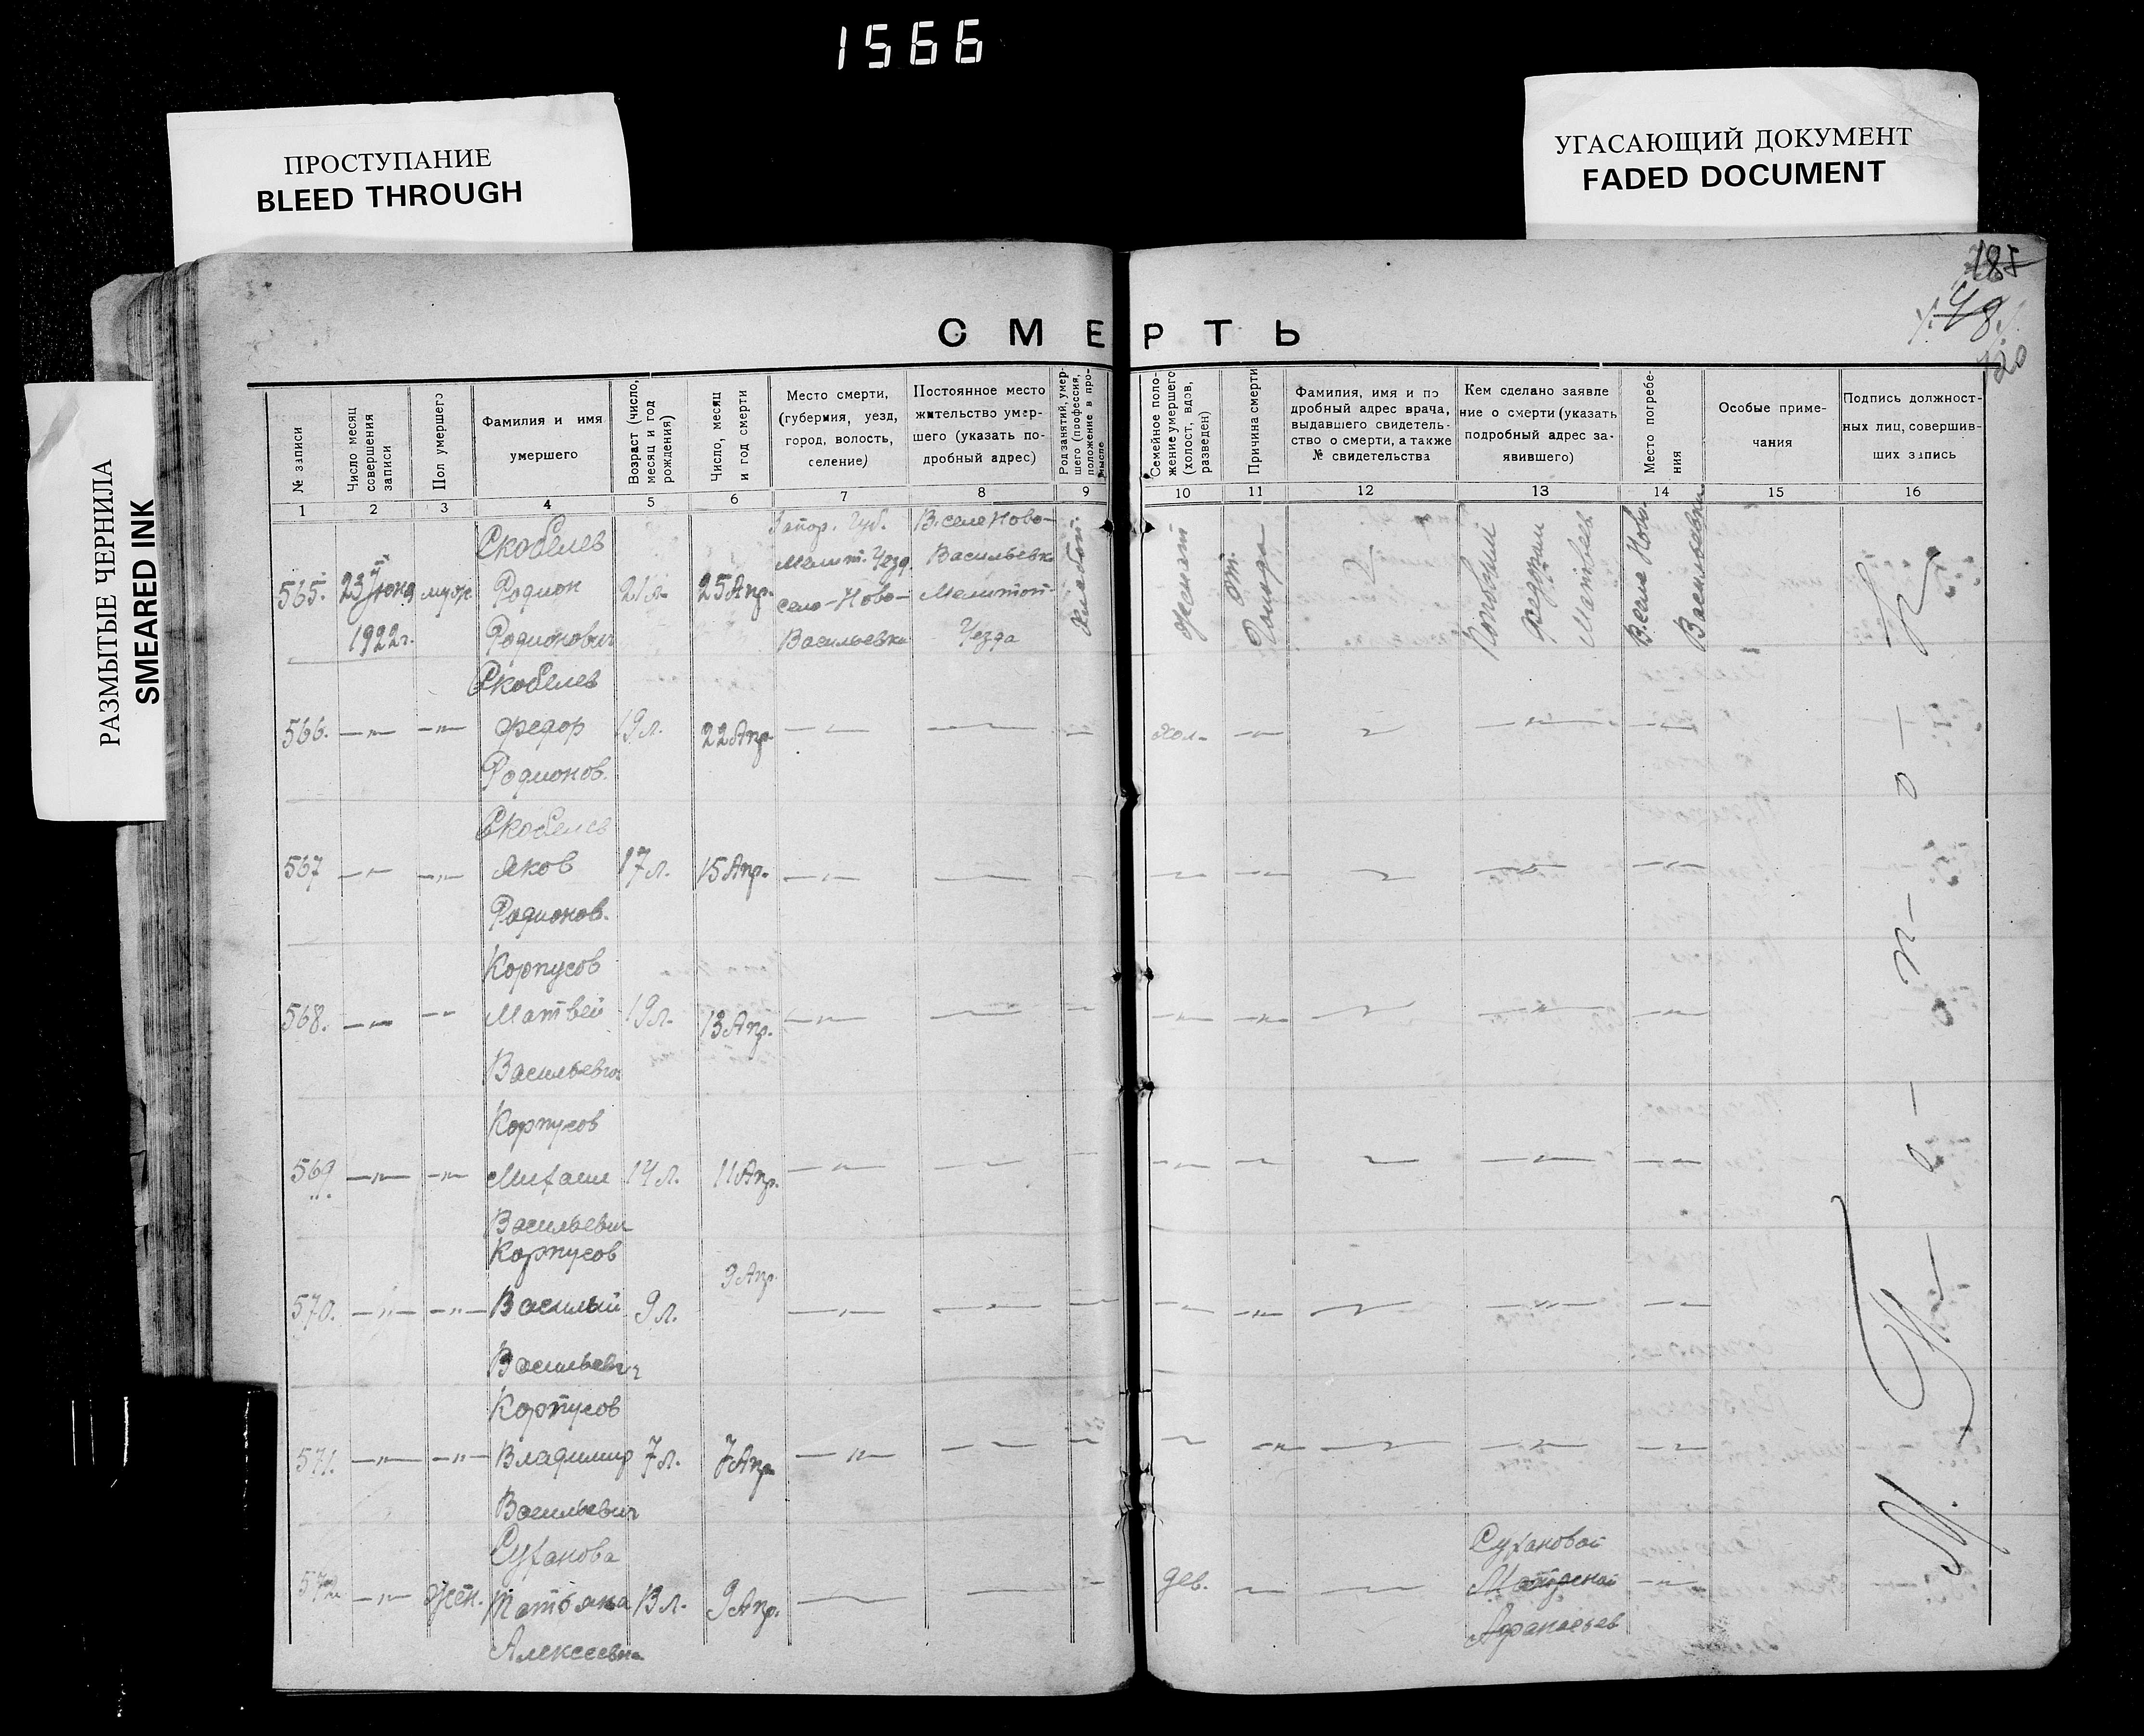 1566
ПРОСТУПАНИЕ
BLEED THROUGH
УГАСАЮЩИЙ ДОКУМЕНТ
FADED DOCUMENT
РАЗМЫТЫЕ ЧЕРНИЛА
SMEARED INK
185
48
120
СМЕРТЬ
№ записи
Число месяц
совершения
записи
Пол умершего
Фамилия и имя
умершего
Возраст (число,
месяц и год
рождения)
Число, месяц
и год смерти
Место смерти,
(губерния, уезд,
город, волость,
селение)
Постоянное место
жительство умер-
шего (указать по-
дробный адрес)
Род занятий, умер-
шего (профессия,
положение в про-
мысле
Семейное поло-
жение умершего
(холост, вдов,
разведен)
Причина смерти
Фамилия, имя и по
дробный адрес врача,
выдавшего свидетель-
ство о смерти, а также
№ свидетельства
Кем сделано заявле
ние о смерти (указать
подробный адрес за-
явившего)
Место погребе-
ния
Особые приме-
чания
Подпись должност-
ных лиц, совершив-
ших запись
1 2 3 4 5 6 7 8 9 10 11 12 13 14 15 16
565. 23 Июня 1922г. муж.
Скобелев
Родион
Родионович
21 л. 25 Апр.
Запор. Губ.
Мелит. Уезд.
село-Ново-
Васильевки
В. селе Ново-
Васильевк
Мелитоп-
Уезда
Хлебоп.
Женат
От.
Голода
Федотом
Матвеев
В. селе Ново
Васильевки
566. —"— —"—
Скобелев
Федор
Родионов.
19 л. 22 Апр. —"— хол- —"— —"— —"—
567 —"— —"—
Скобелев
Яков
Родионов.
17 л. 15 Апр. —"— —"— —"— —"—
568. —"— —"—
Корпусов
Матвей
Васильевич
19 л. 13 Апр. —"— —"— —"— —"— —"—
569 —"— —"—
Корпусов
Михаил
Васильевич
14 л. 11 Апр. —"— —"— —"— —"— —"—
570. —"— —"—
Корпусов
Василий
Васильевич
9 л. 9 Апр. —"— —"— —"— —"— —"—
571. —"— —"—
Корпусов
Владимир
Васильевич
7 л. 7 Апр —"— —"— —"— —"—
572 —"— жен.
Суханова
Татьяна
Алексеевна
13 л. 9 Апр. дев.
Сухановой
Матреной
Афанасьев
—"—